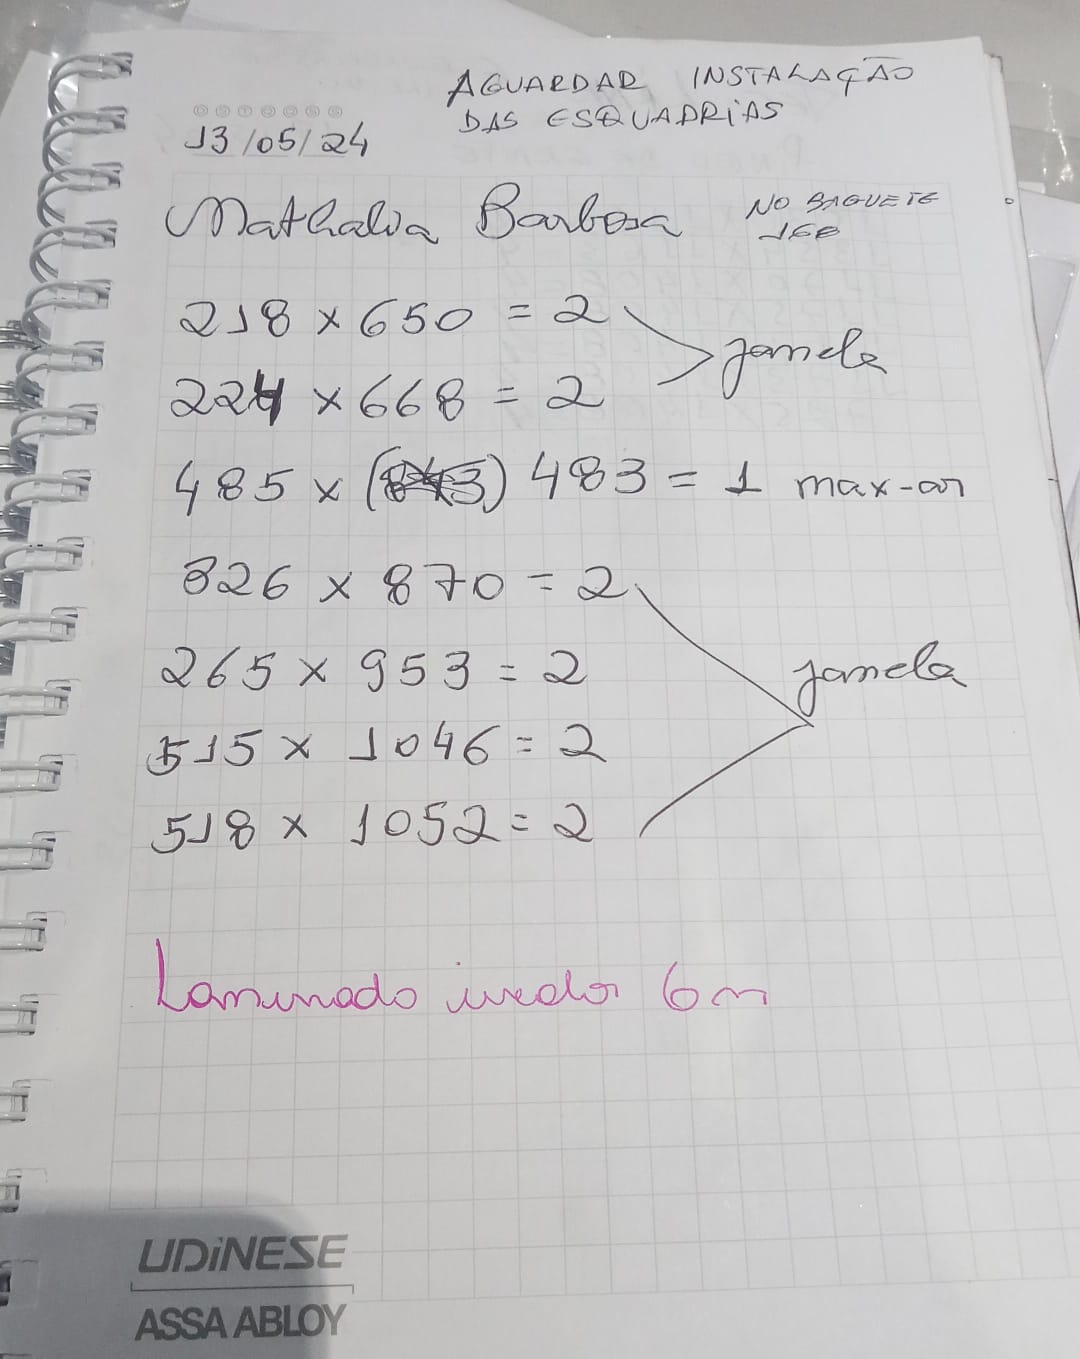 AGUARDAR INSTALAÇÃO
DAS ESQUADRIAS
13/05/24
Nathalia Barbosa
NO BAGUETE
218 x 650 = 2
janela
224 x 668 = 2
485 x 483 = 1 max-ar
826 x 870 = 2
265 x 953 = 2
janela
515 x 1046 = 2
518 x 1052 = 2
Laminado incolor 6m
UDiNESE
ASSA ABLOY